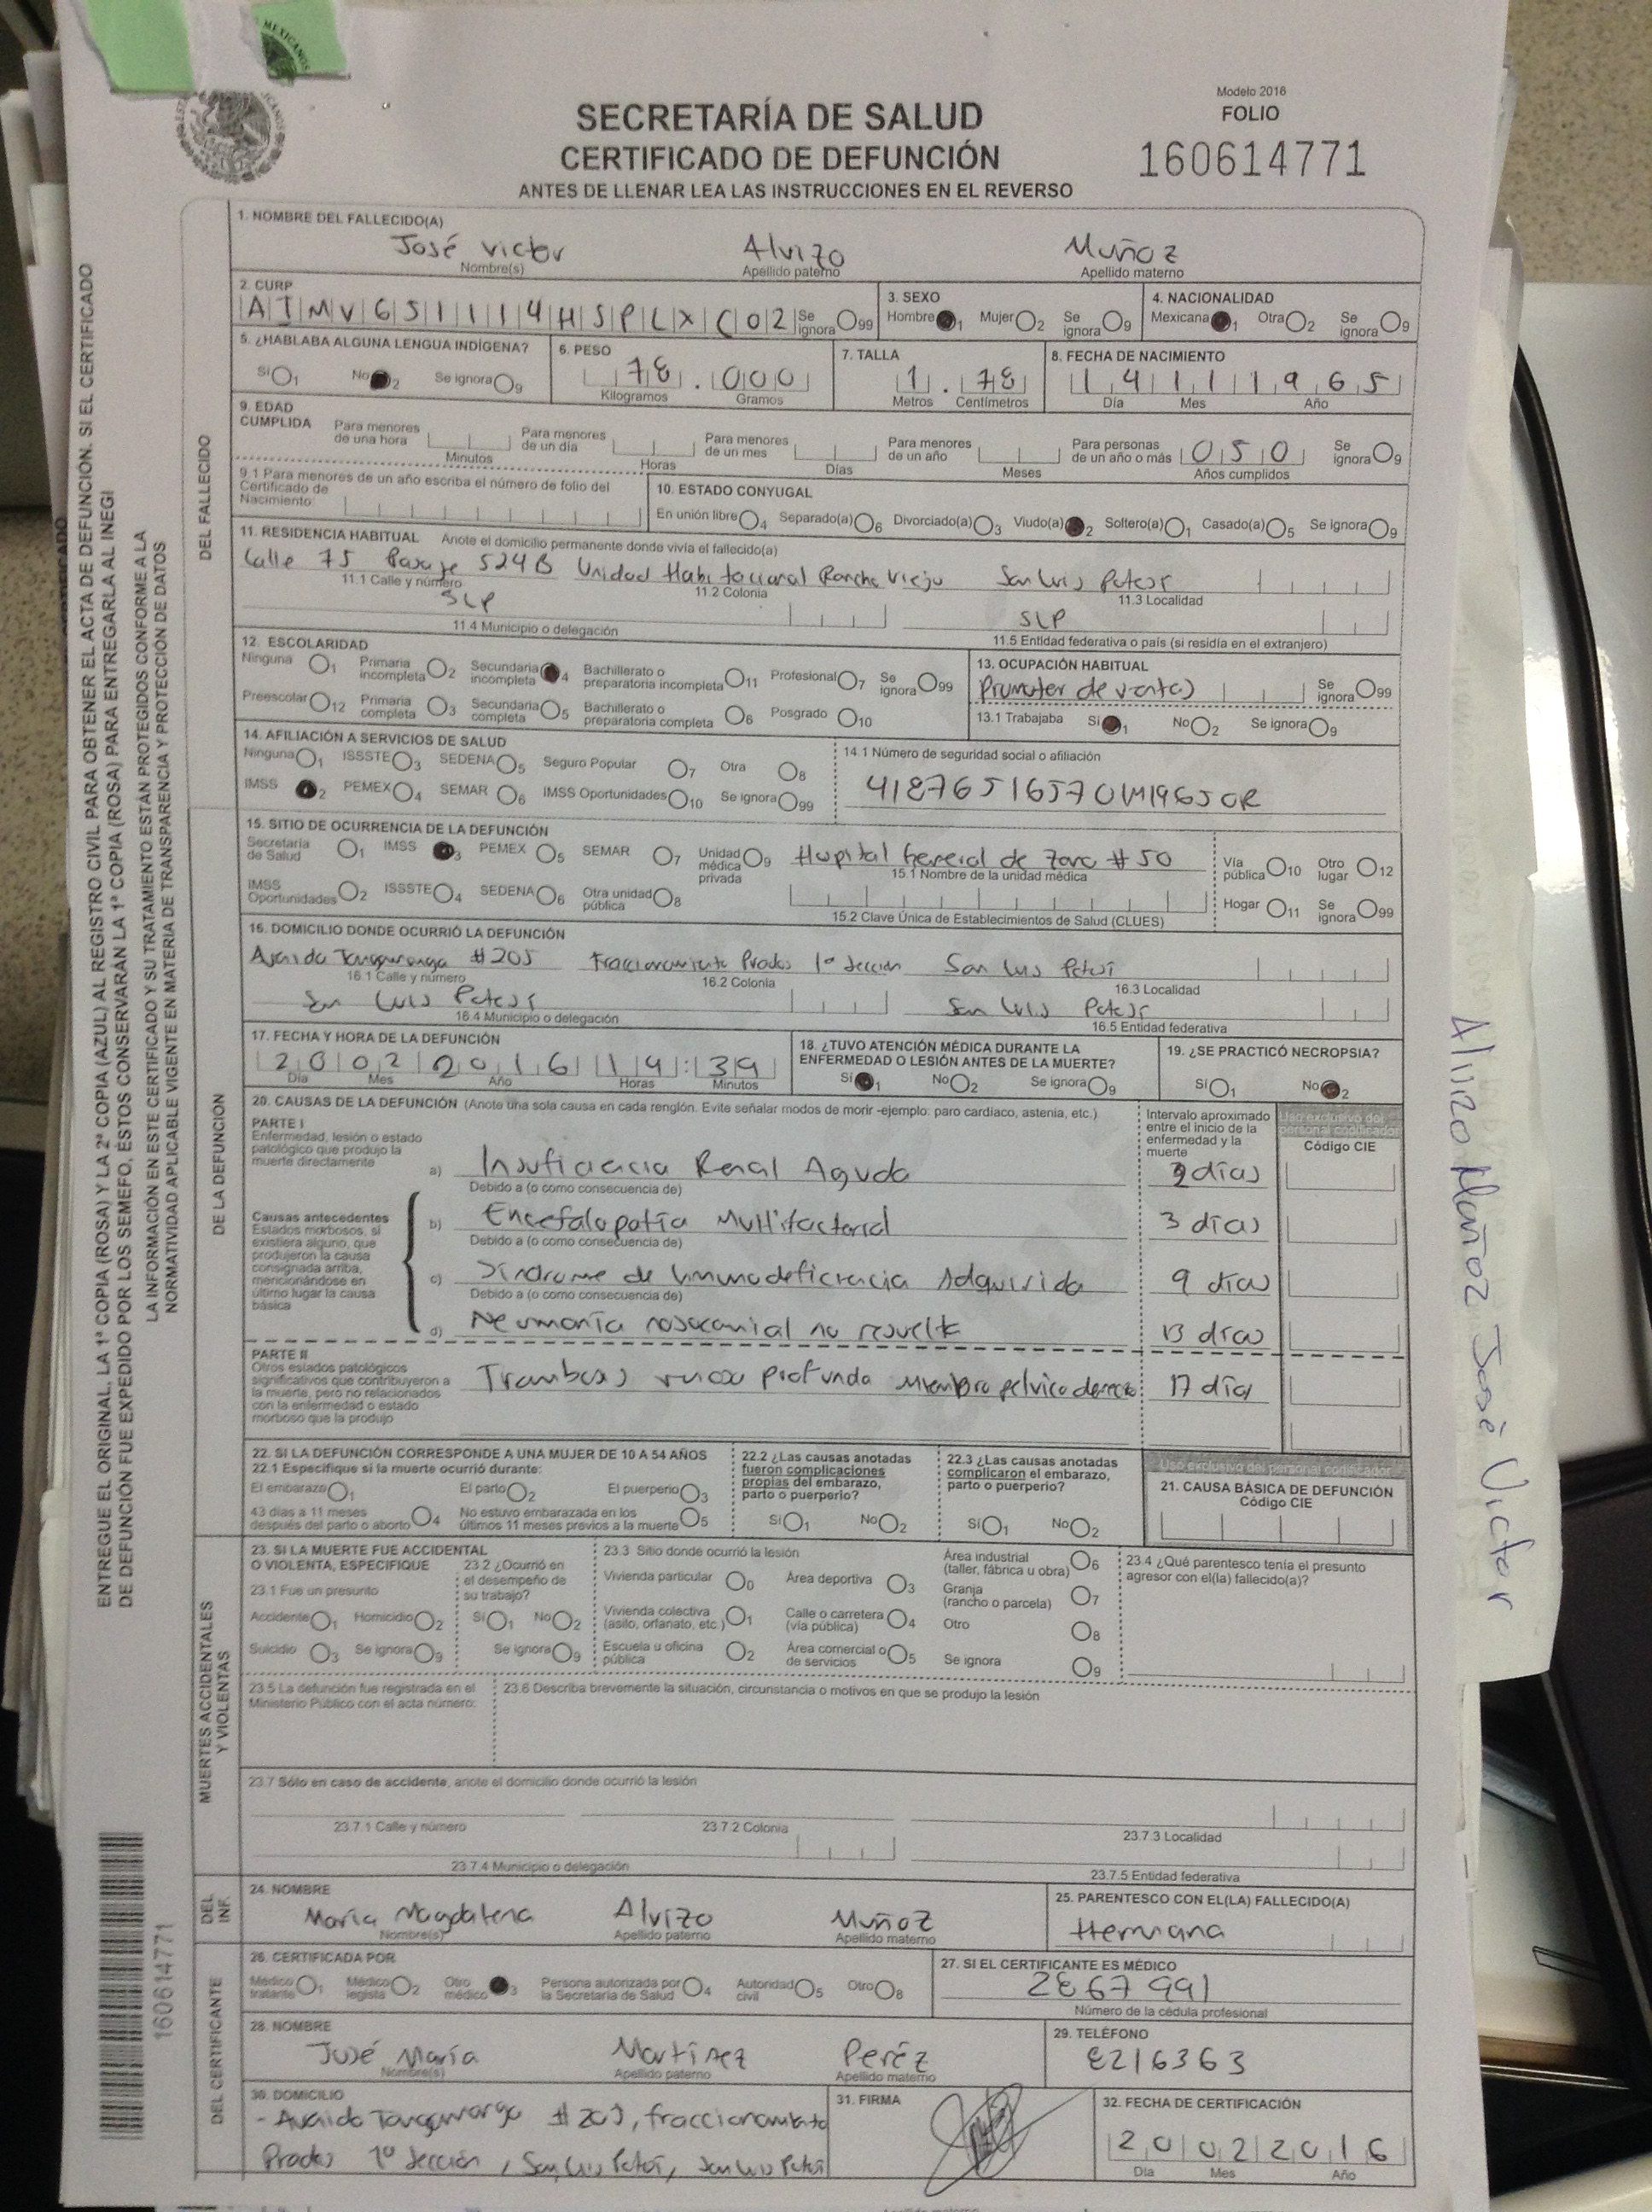 MEXICANOS
Modelo 2016
FOLIO
160614771
SECRETARÍA DE SALUD
CERTIFICADO DE DEFUNCIÓN
ANTES DE LLENAR LEA LAS INSTRUCCIONES EN EL REVERSO
ENTREGUE EL ORIGINAL, LA 1ª COPIA (ROSA) Y LA 2ª COPIA (AZUL) AL REGISTRO CIVIL PARA OBTENER EL ACTA DE DEFUNCIÓN. SI EL CERTIFICADO
DE DEFUNCIÓN FUE EXPEDIDO POR LOS SEMEFO, ÉSTOS CONSERVARÁN LA 1ª COPIA (ROSA) PARA ENTREGARLA AL INEGI
LA INFORMACIÓN EN ESTE CERTIFICADO Y SU TRATAMIENTO ESTÁN PROTEGIDOS CONFORME A LA
NORMATIVIDAD APLICABLE VIGENTE EN MATERIA DE TRANSPARENCIA Y PROTECCIÓN DE DATOS
DEL FALLECIDO
1. NOMBRE DEL FALLECIDO(A)
José Victor Alvizo Muñoz
Nombre(s) Apellido paterno Apellido materno
2. CURP 3. SEXO 4. NACIONALIDAD
AIMV651114HSPLXC02 Se ignora 99 Hombre 1 Mujer 2 Se ignora 9 Mexicana 1 Otra 2 Se ignora 9
5. ¿HABLABA ALGUNA LENGUA INDÍGENA? 6. PESO 7. TALLA 8. FECHA DE NACIMIENTO
Sí 1 No 2 Se ignora 9 78 . 000 1 . 78 14111965
Kilogramos Gramos Metros Centímetros Día Mes Año
9. EDAD CUMPLIDA Para menores de una hora Para menores de un día Para menores de un mes Para menores de un año Para personas de un año o más 050 Se ignora 9
Minutos Horas Días Meses Años cumplidos
9.1 Para menores de un año escriba el número de folio del Certificado de Nacimiento
10. ESTADO CONYUGAL
En unión libre 4 Separado(a) 6 Divorciado(a) 3 Viudo(a) 2 Soltero(a) 1 Casado(a) 5 Se Ignora 9
11. RESIDENCIA HABITUAL Anote el domicilio permanente donde vivía el fallecido(a)
Calle 75 524B Unidad Habitacional Rancho Viejo San Luis Potosí
11.1 Calle y número 11.2 Colonia 11.3 Localidad
SLP SLP
11.4 Municipio o delegación 11.5 Entidad federativa o país (si residía en el extranjero)
12. ESCOLARIDAD
Ninguna 1 Primaria incompleta 2 Secundaria incompleta 4 Bachillerato o preparatoria incompleta 11 Profesional 7 Se ignora 99
Preescolar 12 Primaria completa 3 Secundaria completa 5 Bachillerato o preparatoria completa 6 Posgrado 10
13. OCUPACIÓN HABITUAL
Promotor de ventas Se ignora 99
13.1 Trabajaba Sí 1 No 2 Se ignora 9
14. AFILIACIÓN A SERVICIOS DE SALUD
Ninguna 1 ISSSTE 3 SEDENA 5 Seguro Popular 7 Otra 8
IMSS 2 PEMEX 4 SEMAR 6 IMSS Oportunidades 10 Se ignora 99
14.1 Número de seguridad social o afiliación
4187651657OM1965OR
DE LA DEFUNCIÓN
15. SITIO DE OCURRENCIA DE LA DEFUNCIÓN
Secretaría de Salud 1 IMSS 3 PEMEX 5 SEMAR 7 Unidad médica privada 9 Hospital General de Zona #50 Vía pública 10 Otro lugar 12
15.1 Nombre de la unidad médica
IMSS Oportunidades 2 ISSSTE 4 SEDENA 6 Otra unidad pública 8 Hogar 11 Se ignora 99
15.2 Clave Única de Establecimientos de Salud (CLUES)
16. DOMICILIO DONDE OCURRIÓ LA DEFUNCIÓN
Avenida Tangamanga #205 Fraccionamiento Prados 1ª Sección San Luis Potosí
16.1 Calle y número 16.2 Colonia 16.3 Localidad
San Luis Potosí San Luis Potosí
16.4 Municipio o delegación 16.5 Entidad federativa
17. FECHA Y HORA DE LA DEFUNCIÓN
20022016 14:39
Día Mes Año Horas Minutos
18. ¿TUVO ATENCIÓN MÉDICA DURANTE LA ENFERMEDAD O LESIÓN ANTES DE LA MUERTE?
Sí 1 No 2 Se ignora 9
19. ¿SE PRACTICÓ NECROPSIA?
Sí 1 No 2
20. CAUSAS DE LA DEFUNCIÓN (Anote una sola causa en cada renglón. Evite señalar modos de morir -ejemplo: paro cardiaco, astenia, etc.)
Intervalo aproximado entre el inicio de la enfermedad y la muerte
Uso exclusivo del personal codificador
Código CIE
PARTE I
Enfermedad, lesión o estado patológico que produjo la muerte directamente
a) Insuficiencia Renal Aguda 2 días
Debido a (o como consecuencia de)
Causas antecedentes
Estados morbosos, si existiera alguno, que produjeron la causa consignada arriba, mencionándose en último lugar la causa básica
b) Encefalopatía Multifactorial 3 días
Debido a (o como consecuencia de)
c) Síndrome de Inmunodeficiencia Adquirida 9 días
Debido a (o como consecuencia de)
d) Neumonía nosocomial no resuelta 13 días
PARTE II
Otros estados patológicos significativos que contribuyeron a la muerte, pero no relacionados con la enfermedad o estado morboso que la produjo
Trombosis venosa profunda miembro pélvico derecho 17 días
22. SI LA DEFUNCIÓN CORRESPONDE A UNA MUJER DE 10 A 54 AÑOS
22.1 Especifique si la muerte ocurrió durante:
El embarazo 1 El parto 2 El puerperio 3
43 días a 11 meses después del parto o aborto 4 No estuvo embarazada en los últimos 11 meses previos a la muerte 5
22.2 ¿Las causas anotadas fueron complicaciones propias del embarazo, parto o puerperio?
Sí 1 No 2
22.3 ¿Las causas anotadas complicaron el embarazo, parto o puerperio?
Sí 1 No 2
Uso exclusivo del personal codificador
21. CAUSA BÁSICA DE DEFUNCIÓN
Código CIE
MUERTES ACCIDENTALES Y VIOLENTAS
23. SI LA MUERTE FUE ACCIDENTAL O VIOLENTA, ESPECIFIQUE
23.1 Fue un presunto
Accidente 1 Homicidio 2
Suicidio 3 Se ignora 9
23.2 ¿Ocurrió en el desempeño de su trabajo?
Sí 1 No 2
Se ignora 9
23.3 Sitio donde ocurrió la lesión
Vivienda particular 0 Área deportiva 3 Área industrial (taller, fábrica u obra) 6
Vivienda colectiva (asilo, orfanato, etc.) 1 Calle o carretera (vía pública) 4 Granja (rancho o parcela) 7
Escuela u oficina pública 2 Área comercial o de servicios 5 Otro 8
Se ignora 9
23.4 ¿Qué parentesco tenía el presunto agresor con el(la) fallecido(a)?
23.5 La defunción fue registrada en el Ministerio Público con el acta número:
23.6 Describa brevemente la situación, circunstancia o motivos en que se produjo la lesión
23.7 Sólo en caso de accidente, anote el domicilio donde ocurrió la lesión
23.7.1 Calle y número 23.7.2 Colonia 23.7.3 Localidad
23.7.4 Municipio o delegación 23.7.5 Entidad federativa
DEL INF.
24. NOMBRE
María Magdalena Alvizo Muñoz
Nombre(s) Apellido paterno Apellido materno
25. PARENTESCO CON EL(LA) FALLECIDO(A)
Hermana
DEL CERTIFICANTE
26. CERTIFICADA POR
Médico tratante 1 Médico legista 2 Otro médico 3 Persona autorizada por la Secretaría de Salud 4 Autoridad civil 5 Otro 8
27. SI EL CERTIFICANTE ES MÉDICO
2867991
Número de la cédula profesional
28. NOMBRE
José María Martínez Peréz
Nombre(s) Apellido paterno Apellido materno
29. TELÉFONO
8216363
30. DOMICILIO
- Avenida Tangamanga #205, fraccionamiento
Prados 1ª Sección, San Luis Potosí, San Luis Potosí
31. FIRMA
32. FECHA DE CERTIFICACIÓN
20022016
Día Mes Año
160614771
Alvizo Muñoz José Victor